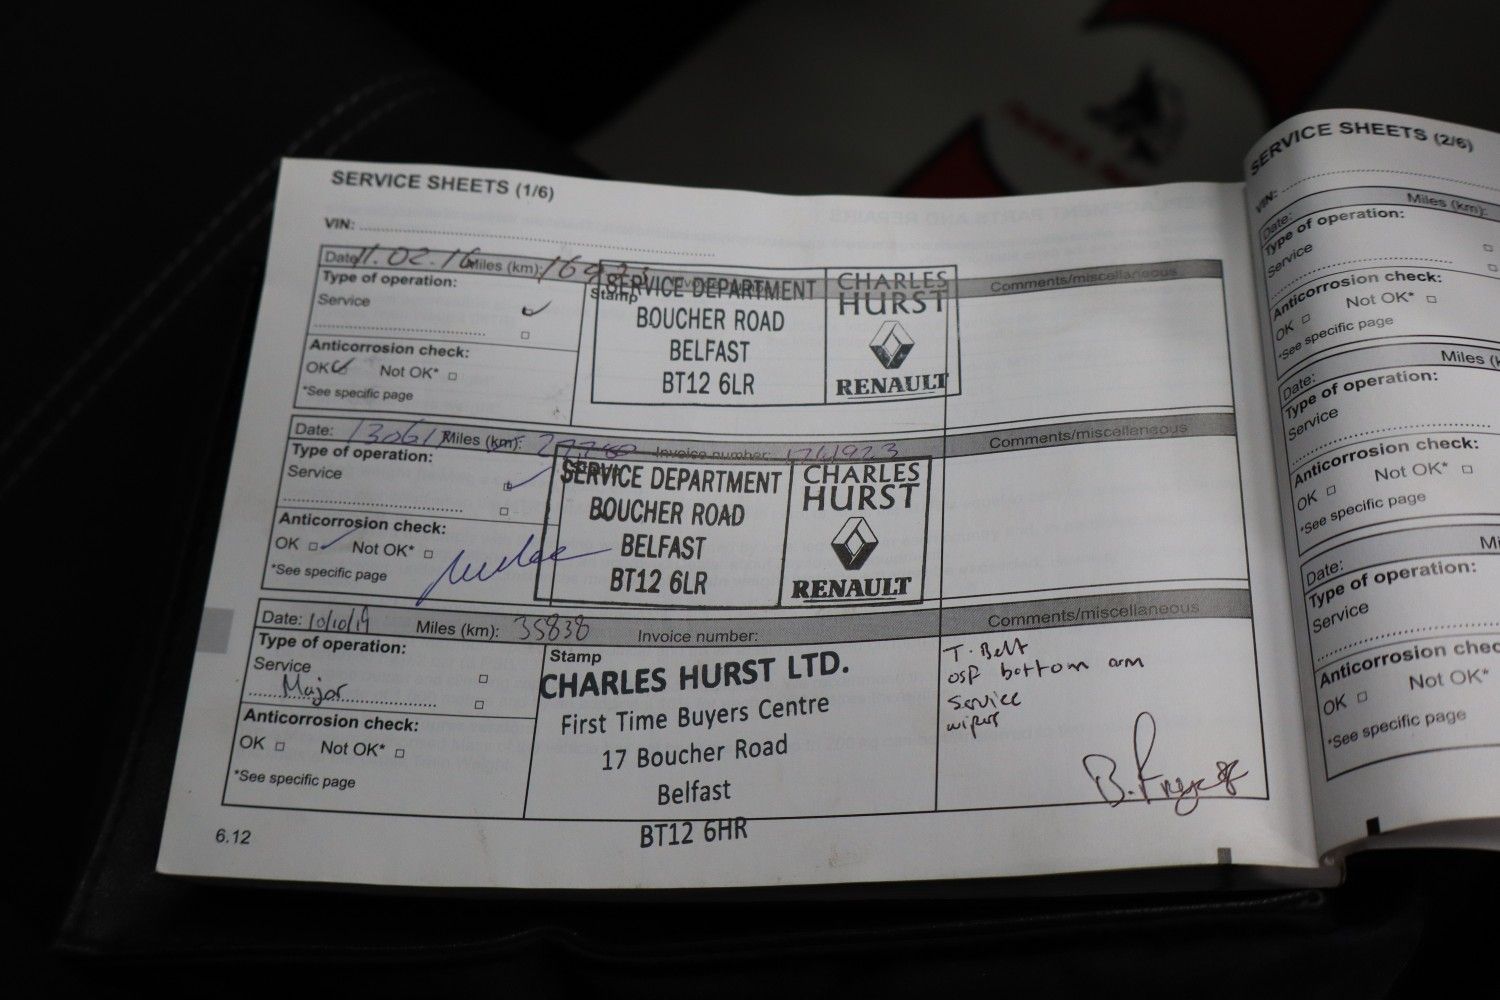 SERVICE SHEETS (1/6)
VIN:
Date: 11.02.16 Miles (km): Comments/miscellaneous
Type of operation:
Service
Stamp
SERVICE DEPARTMENT
BOUCHER ROAD
BELFAST
BT12 6LR
CHARLES
HURST
RENAULT
Anticorrosion check:
OK Not OK*
*See specific page
Date: 130617 Miles (km): Invoice number: Comments/miscellaneous
Type of operation:
Service
SERVICE DEPARTMENT
BOUCHER ROAD
BELFAST
BT12 6LR
CHARLES
HURST
RENAULT
Anticorrosion check:
OK Not OK*
*See specific page
Date: 10/10/19 Miles (km): 35838 Invoice number: Comments/miscellaneous
Type of operation:
Service
Major
Stamp
CHARLES HURST LTD.
First Time Buyers Centre
17 Boucher Road
Belfast
BT12 6HR
T. Belt
OSF bottom arm
Service
wipers
Anticorrosion check:
OK Not OK*
*See specific page
6.12
SERVICE SHEETS (2/6)
VIN:
Date: Miles (km):
Type of operation:
Service
Anticorrosion check:
OK Not OK*
*See specific page
Date: Miles (k
Type of operation:
Service
Anticorrosion check:
OK Not OK*
*See specific page
Date: Mi
Type of operation:
Service
Anticorrosion chec
OK Not OK*
*See specific page